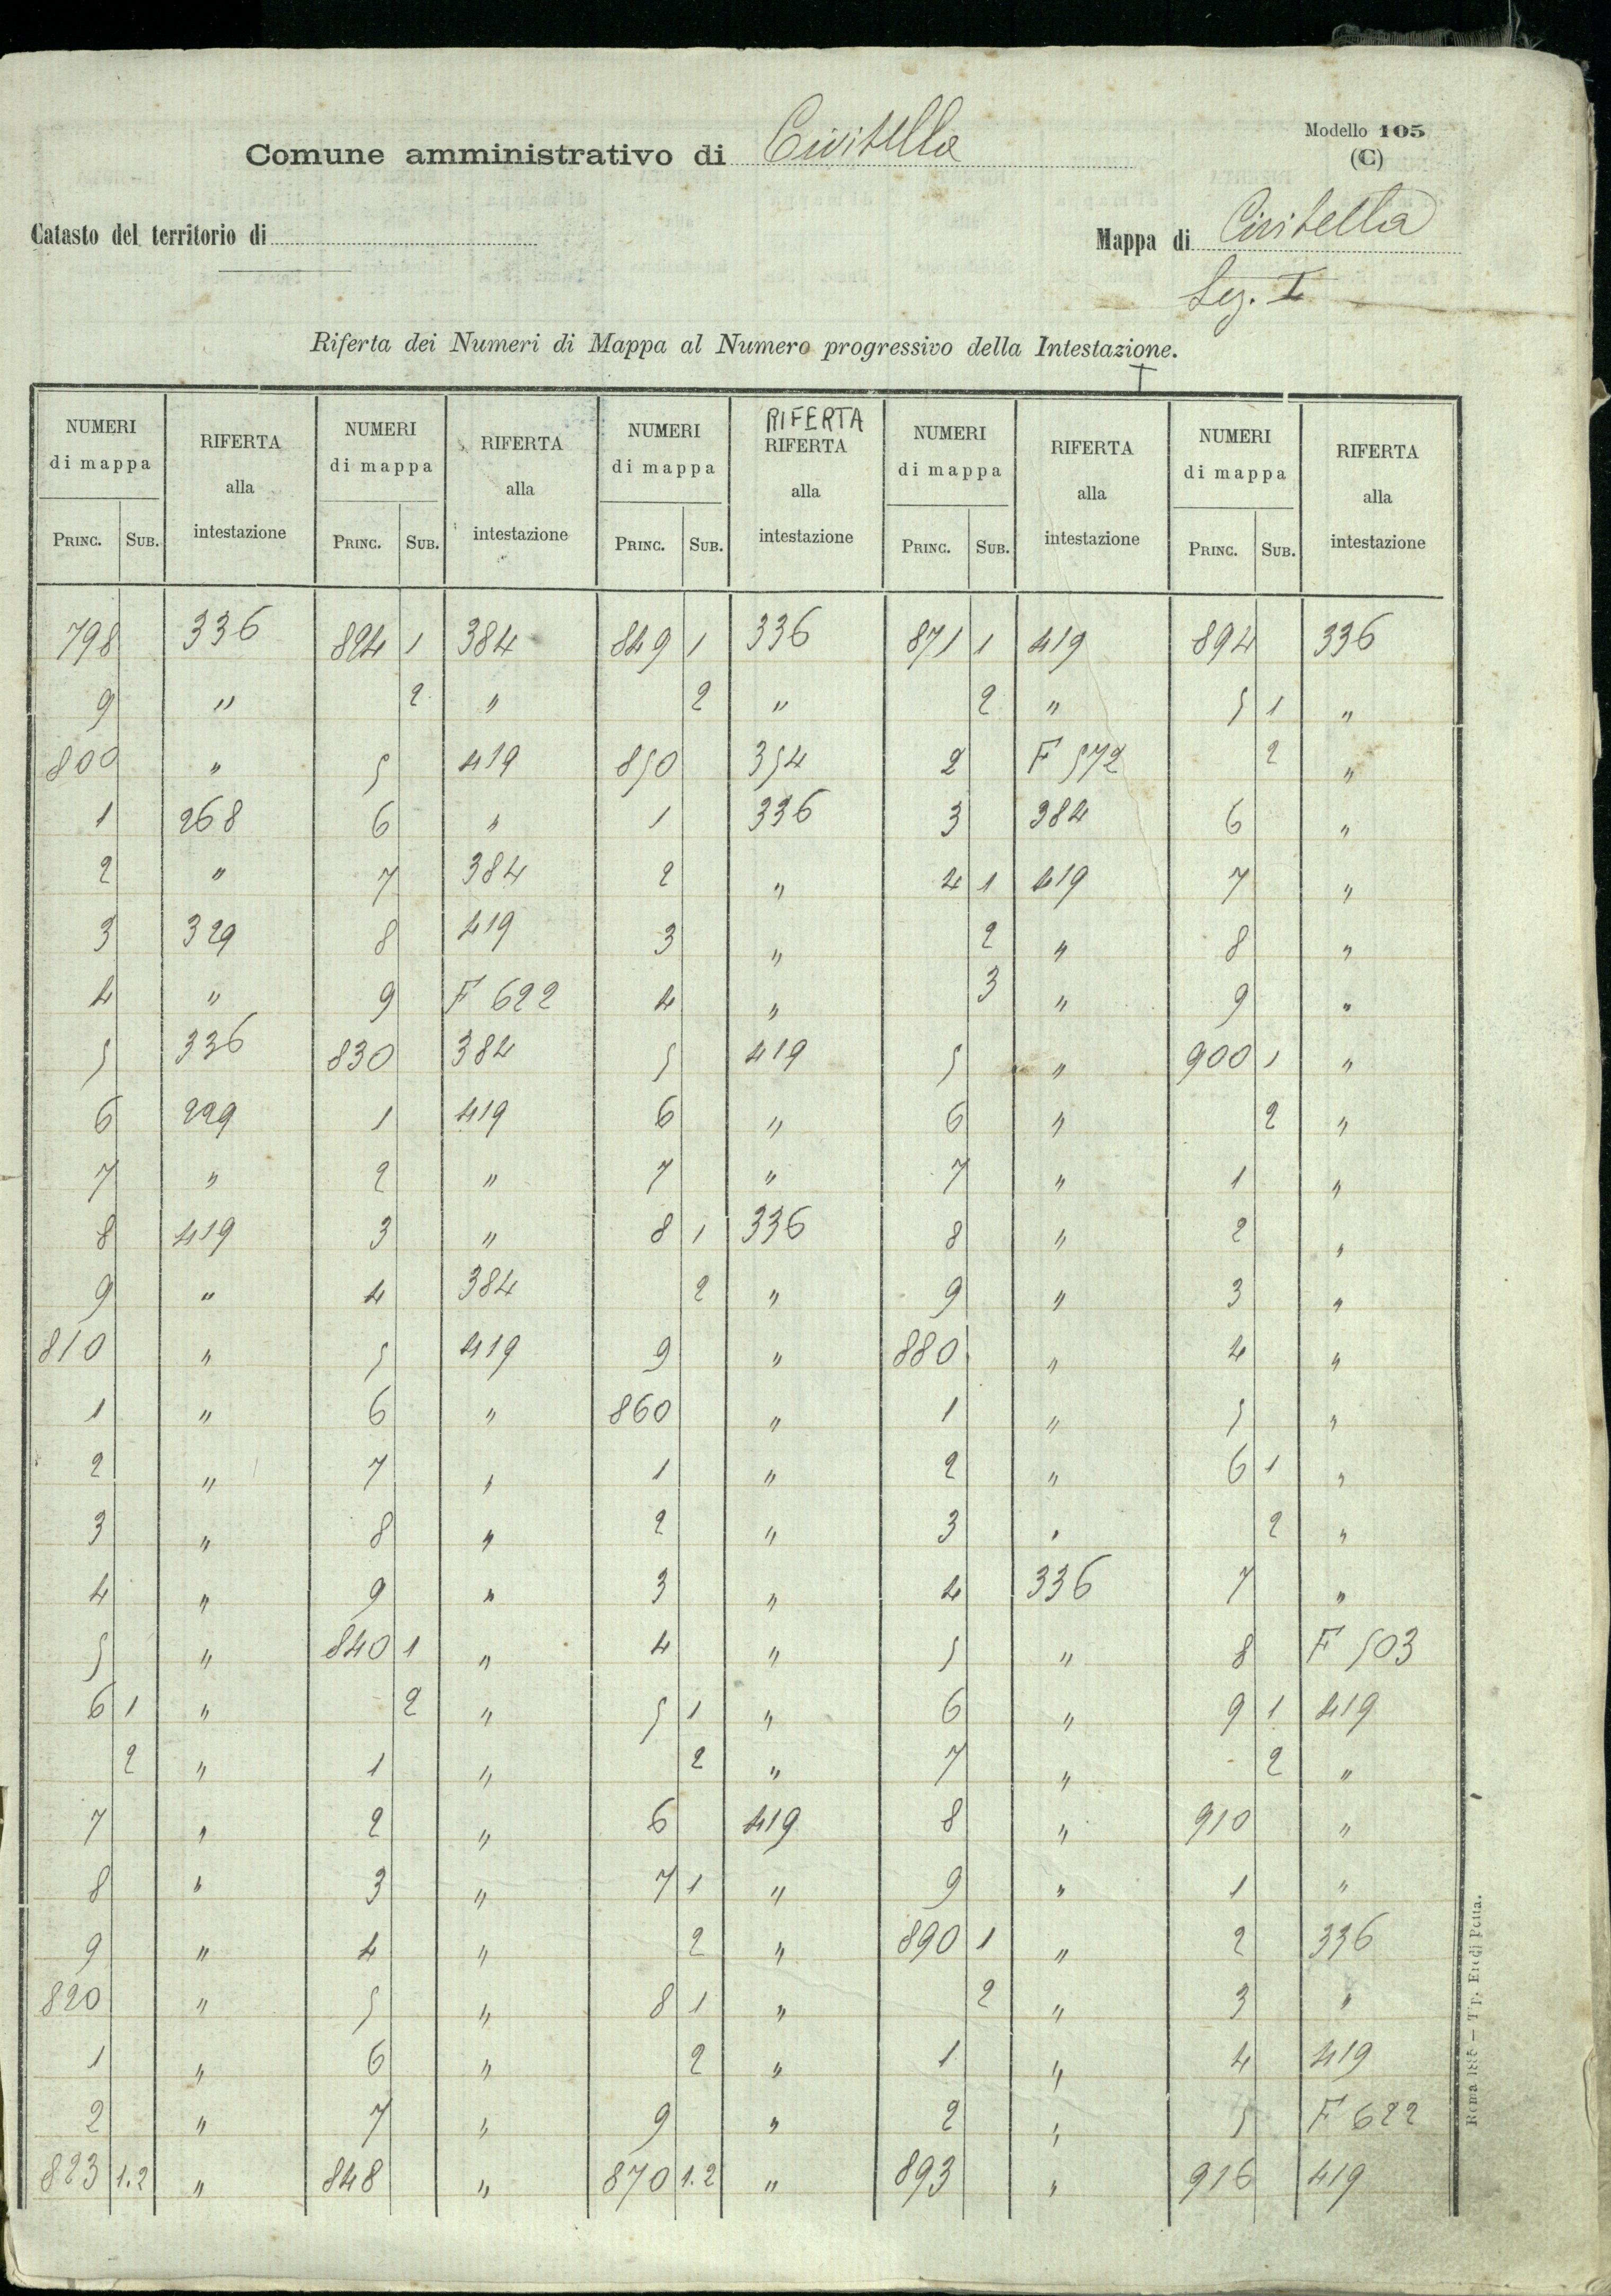 Modello 105
(C)
Comune amministrativo di Civitella
Catasto del territorio di Mappa di Civitella
Sez. I
Riferta dei Numeri di Mappa al Numero progressivo della Intestazione.
I
RIFERTA
NUMERI RIFERTA NUMERI RIFERTA NUMERI RIFERTA NUMERI RIFERTA NUMERI RIFERTA
di mappa alla di mappa alla di mappa alla di mappa alla di mappa alla
PRINC. SUB. intestazione PRINC. SUB. intestazione PRINC. SUB. intestazione PRINC. SUB. intestazione PRINC. SUB. intestazione
798 336 824 1 384 849 1 336 871 1 419 894 336
9 " 2 " 2 " 2 " 5 1 "
800 " 5 419 850 354 2 F 572 2 "
1 268 6 " 1 336 3 384 6 "
2 " 7 384 2 " 4 1 419 7 "
3 329 8 419 3 " 2 " 8 "
4 " 9 F 622 4 " 3 " 9 "
5 336 830 384 5 419 5 " 900 1 "
6 229 1 419 6 " 6 " 2 "
7 " 2 " 7 " 7 " 1 "
8 419 3 " 8 1 336 8 " 2 "
9 " 4 384 2 " 9 " 3 "
810 " 5 419 9 " 880 " 4 "
1 " 6 " 860 " 1 " 5 "
2 " 7 " 1 " 2 " 6 1 "
3 " 8 " 2 " 3 " 2 "
4 " 9 " 3 " 4 336 7 "
5 " 840 1 " 4 " 5 " 8 F 503
6 1 " 2 " 5 1 " 6 " 9 1 419
2 " 1 " 2 " 7 " 2 "
7 " 2 " 6 419 8 " 910 "
8 " 3 " 7 1 " 9 " 1 "
9 " 4 " 2 " 890 1 " 2 336
820 " 5 " 8 1 " 2 " 3 "
1 " 6 " 2 " 1 " 4 419
2 " 7 " 9 " 2 " 5 F 622
823 1.2 " 848 " 870 1.2 " 893 " 916 419